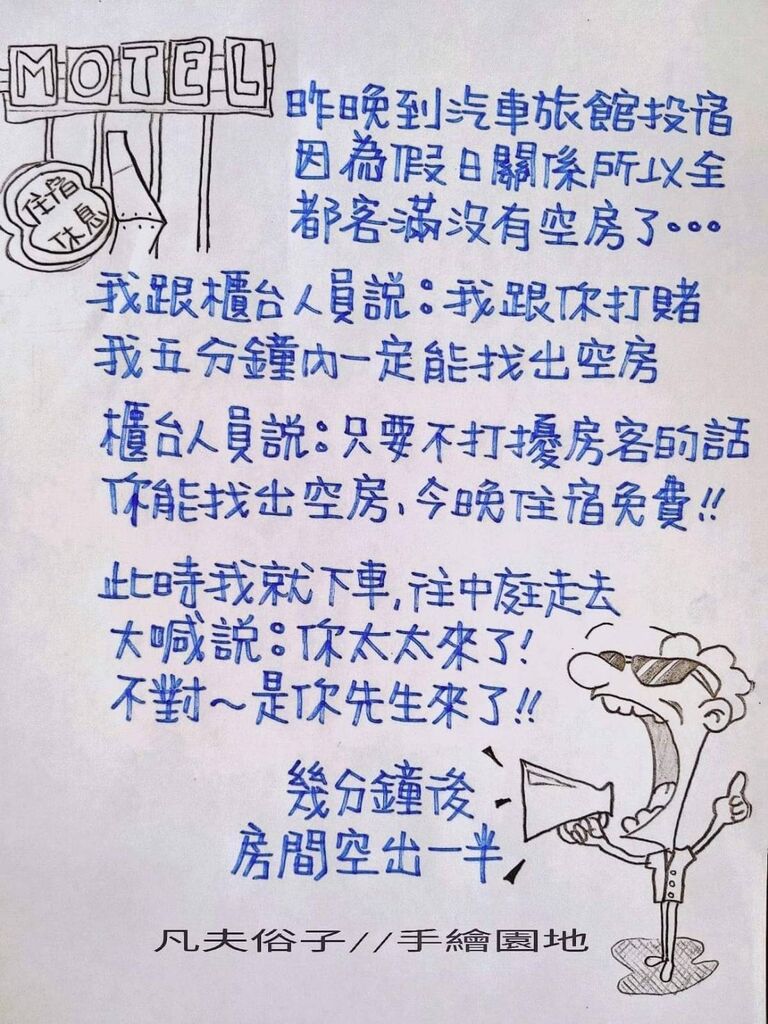 MOTEL
住宿
休息
昨晚到汽車旅館投宿
因為假日關係所以全
都客滿沒有空房了...
我跟櫃台人員説：我跟你打賭
我五分鐘內一定能找出空房
櫃台人員説：只要不打擾房客的話
你能找出空房、今晚住宿免費!!
此時我就下車,往中庭走去
大喊説：你太太來了!
不對～是你先生來了!!
幾分鐘後
房間空出一半
凡夫俗子//手繪園地